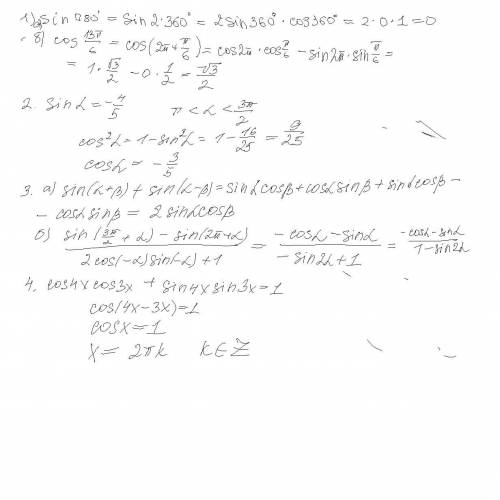 1) а) sin 720° = sin 2·360° = 2 sin 360° · cos 360° = 2·0·1 = 0
б) cos 13π/6 = cos(2π + π/6) = cos 2π · cos π/6 − sin 2π · sin π/6 =
= 1·√3/2 − 0·1/2 = √3/2
2. sin α = −4/5 π < α < 3π/2
cos²α = 1 − sin²α = 1 − 16/25 = 9/25
cos α = −3/5
3. а) sin(α+β) + sin(α−β) = sin α cos β + cos α sin β + sin α cos β −
− cos α sin β = 2 sin α cos β
б) (sin(3π/2 + α) − sin(2π + α))/(2 cos(−α) sin(−α) + 1) = (−cos α − sin α)/(−sin 2α + 1) = (−cos α − sin α)/(1 − sin 2α)
4. cos 4x cos 3x + sin 4x sin 3x = 1
cos(4x − 3x) = 1
cos x = 1
x = 2πk k ∈ Z